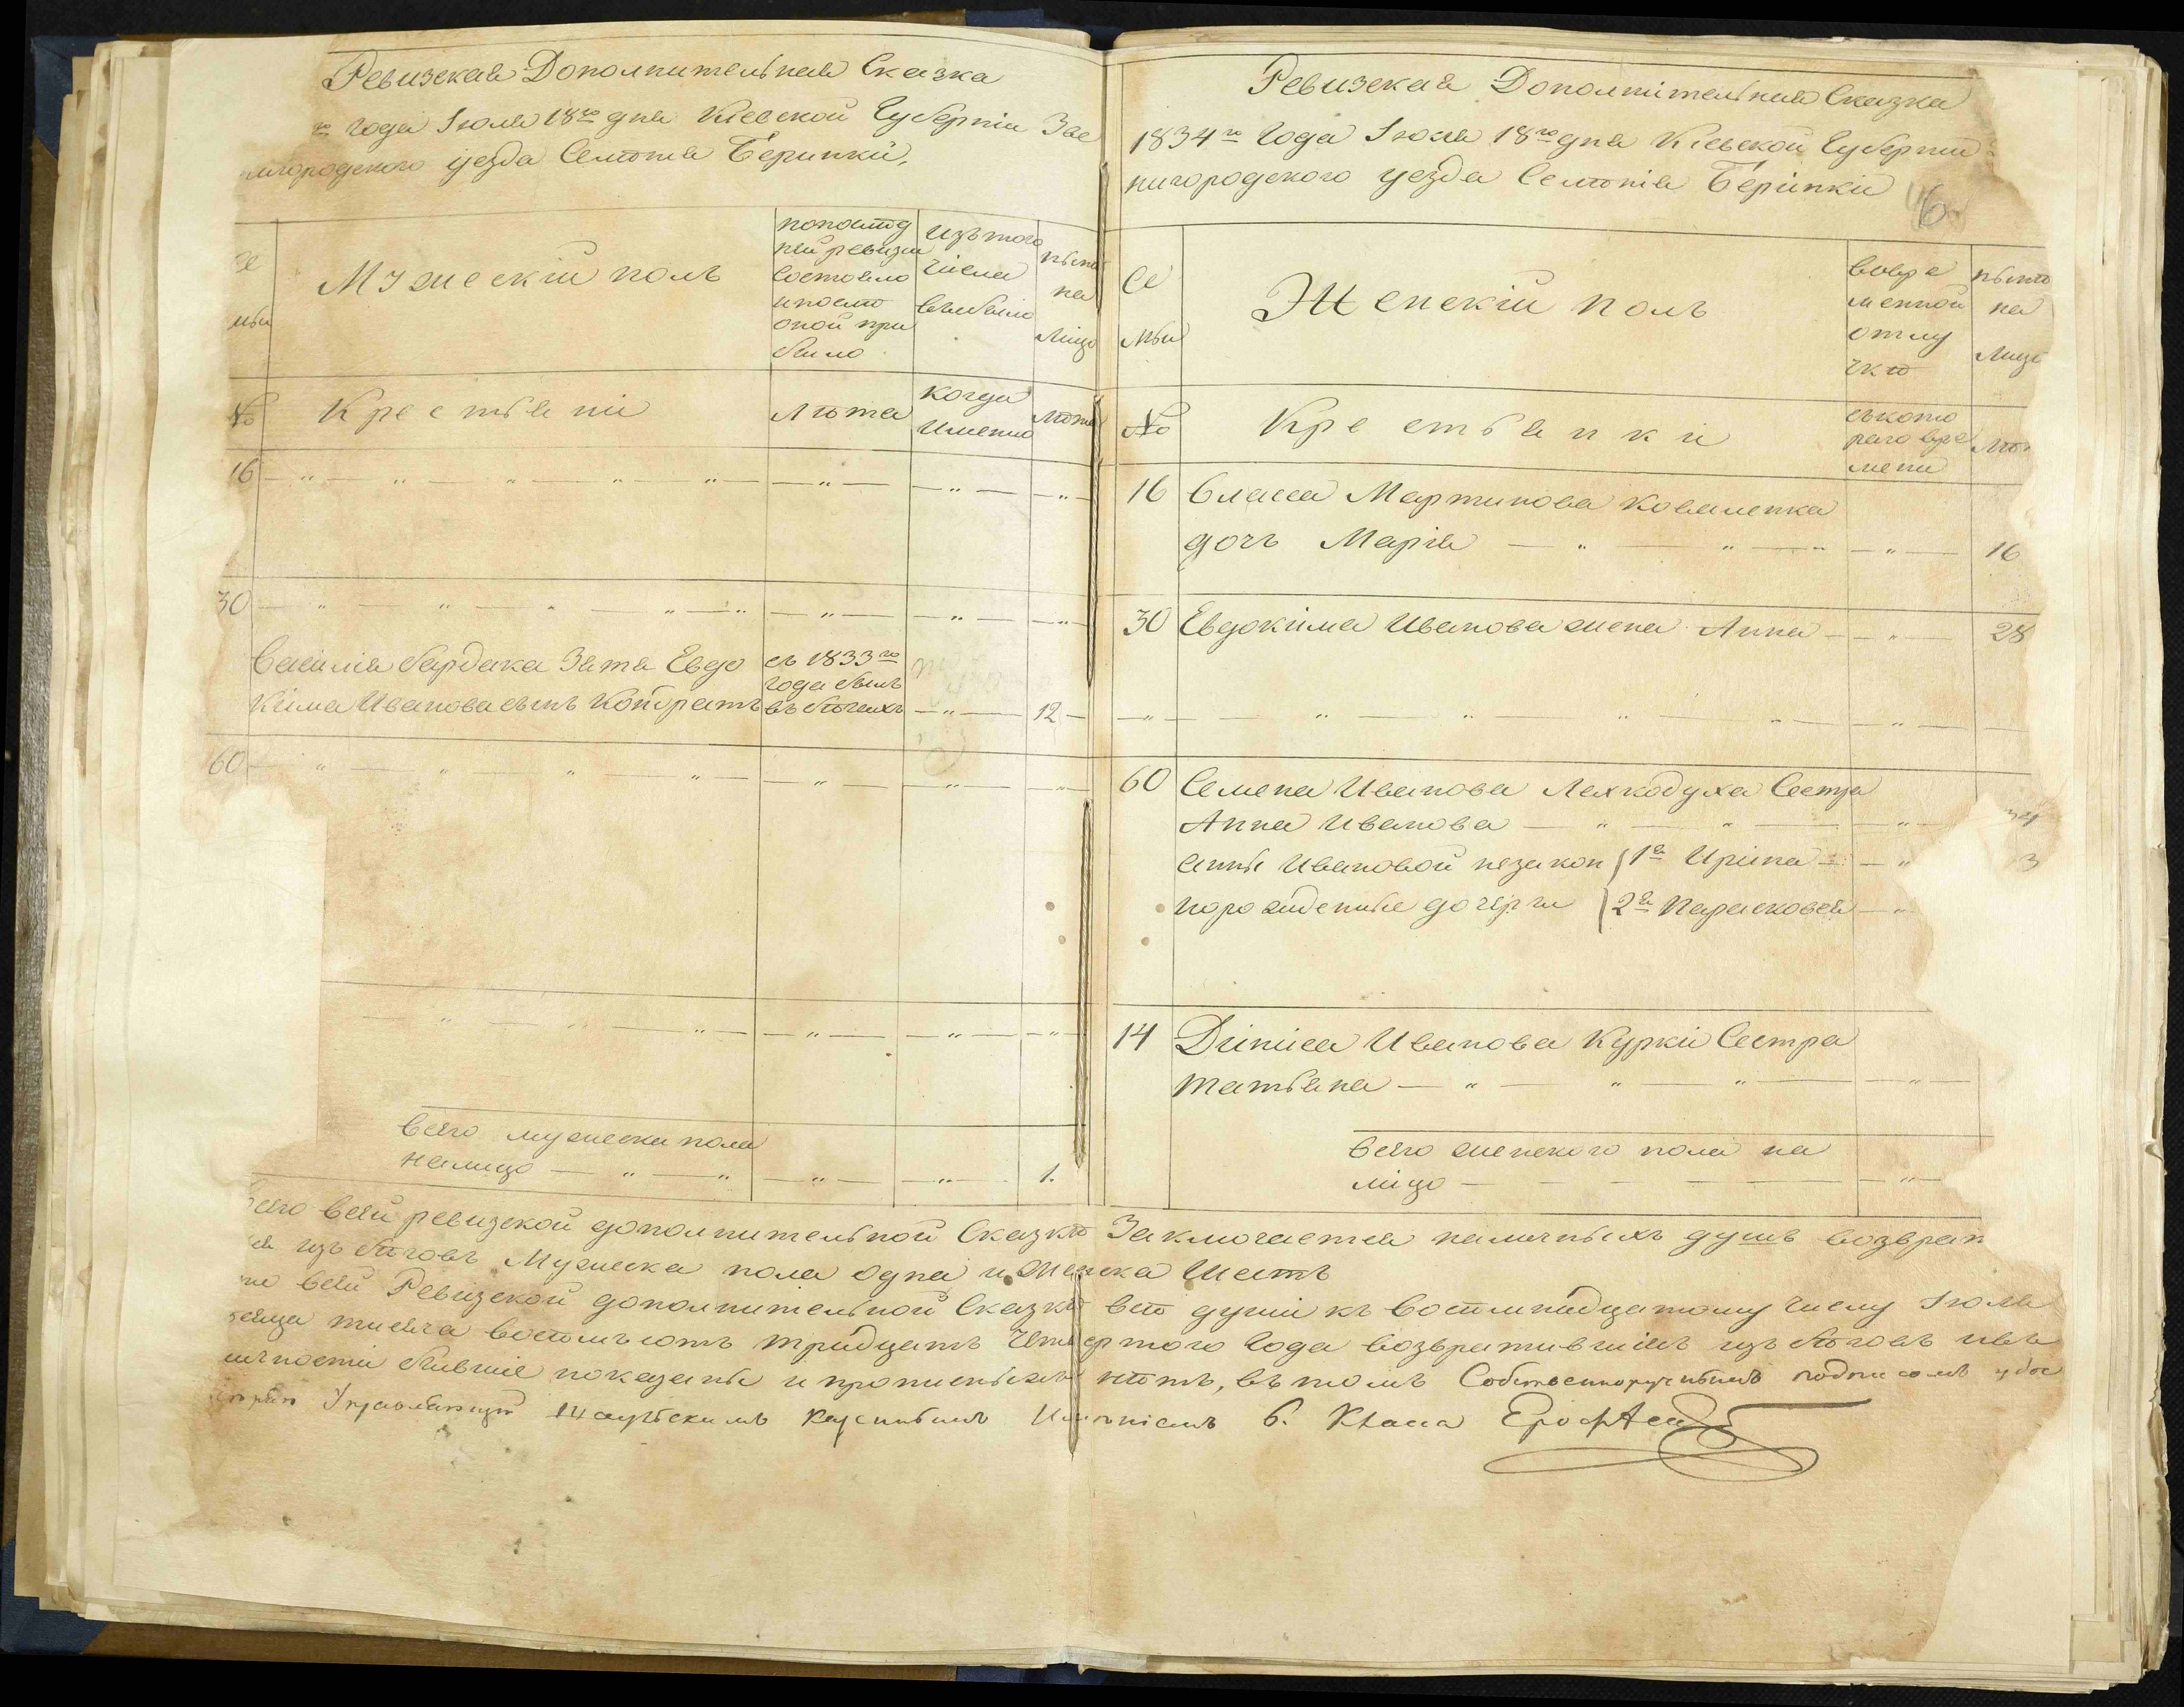 Ревизская Дополнительная Сказка
го года Июля 18го дня Киевской Губернии Зве
нигородского уезда Селѣнія Беринки,
се
мьи
Мужескій полъ
попослѣд
ней ревизіи
Состояло
ипослѣ
оной при
было
Изътого
числа
выбыло
нынѣ
на
Лицо
№
Крестьяни
Лѣта
когда
Именно
Лѣта
16 — " — " — " — " — " — — " — — " — — " —
30 — " — " — " — " — " — — " — — " — — " —
Василія бардака Зятя Евдо
кима Иванова сынъ Кондратъ
съ 1833го
года былъ
въ бѣгахъ
— " — 12 —
60 — " — " — " — " — — " — — " — — " —
— " — " — " — — " — — " — — " —
Всего мужеска пола
налицо — " — " — " — — " — 1.
Ревизская Дополнительная Сказка
1834го Года Июля 18го дня Киевской Губерніи
нигородского уезда Селѣнія Беринки
6
Се
мьи
Женскій полъ
вовре
менной
отлу
чкѣ
нынѣ
на
Лицо
№
Крестьянки
съкото
раго вре
мени
Лѣт
16 Власа Мартинова Коваленка
дочь Марія — " — " — " — " — 16
30 Евдокима Иванова жена Анна — " — 28
— " — " — " — " — " — " —
60 Семена Иванова Лехкодуха Сестра
Анна Иванова — " — " — " —
Анны Ивановой незакон { 1я Ирина — " 3
порожденные дочери { 2я Парасковея — "
14 Дениса Иванова Курки Сестра
татьяна — " — " — " — " —
Всего женского пола на
лицо — — — — — " —
Всего всей ревизской дополнительной Сказкѣ Заключается наличныхъ душъ возврат
изъ бѣговъ Мужеска пола одна и женска Шесть
всей Ревизской дополнительной Сказкѣ всѣ души къ восѣмнадцатому числу Июля
тисяча восѣмъ сотъ тридцать Четвертого Года возвратившіясь изъ бѣговъ ивъ
личности бывшіе показаны и прописныхъ нѣтъ, въ томъ Собственноручнымъ подписомъ удос
Управляющій Казеннымъ Имѣніемъ 6. Класа Ерофѣевъ